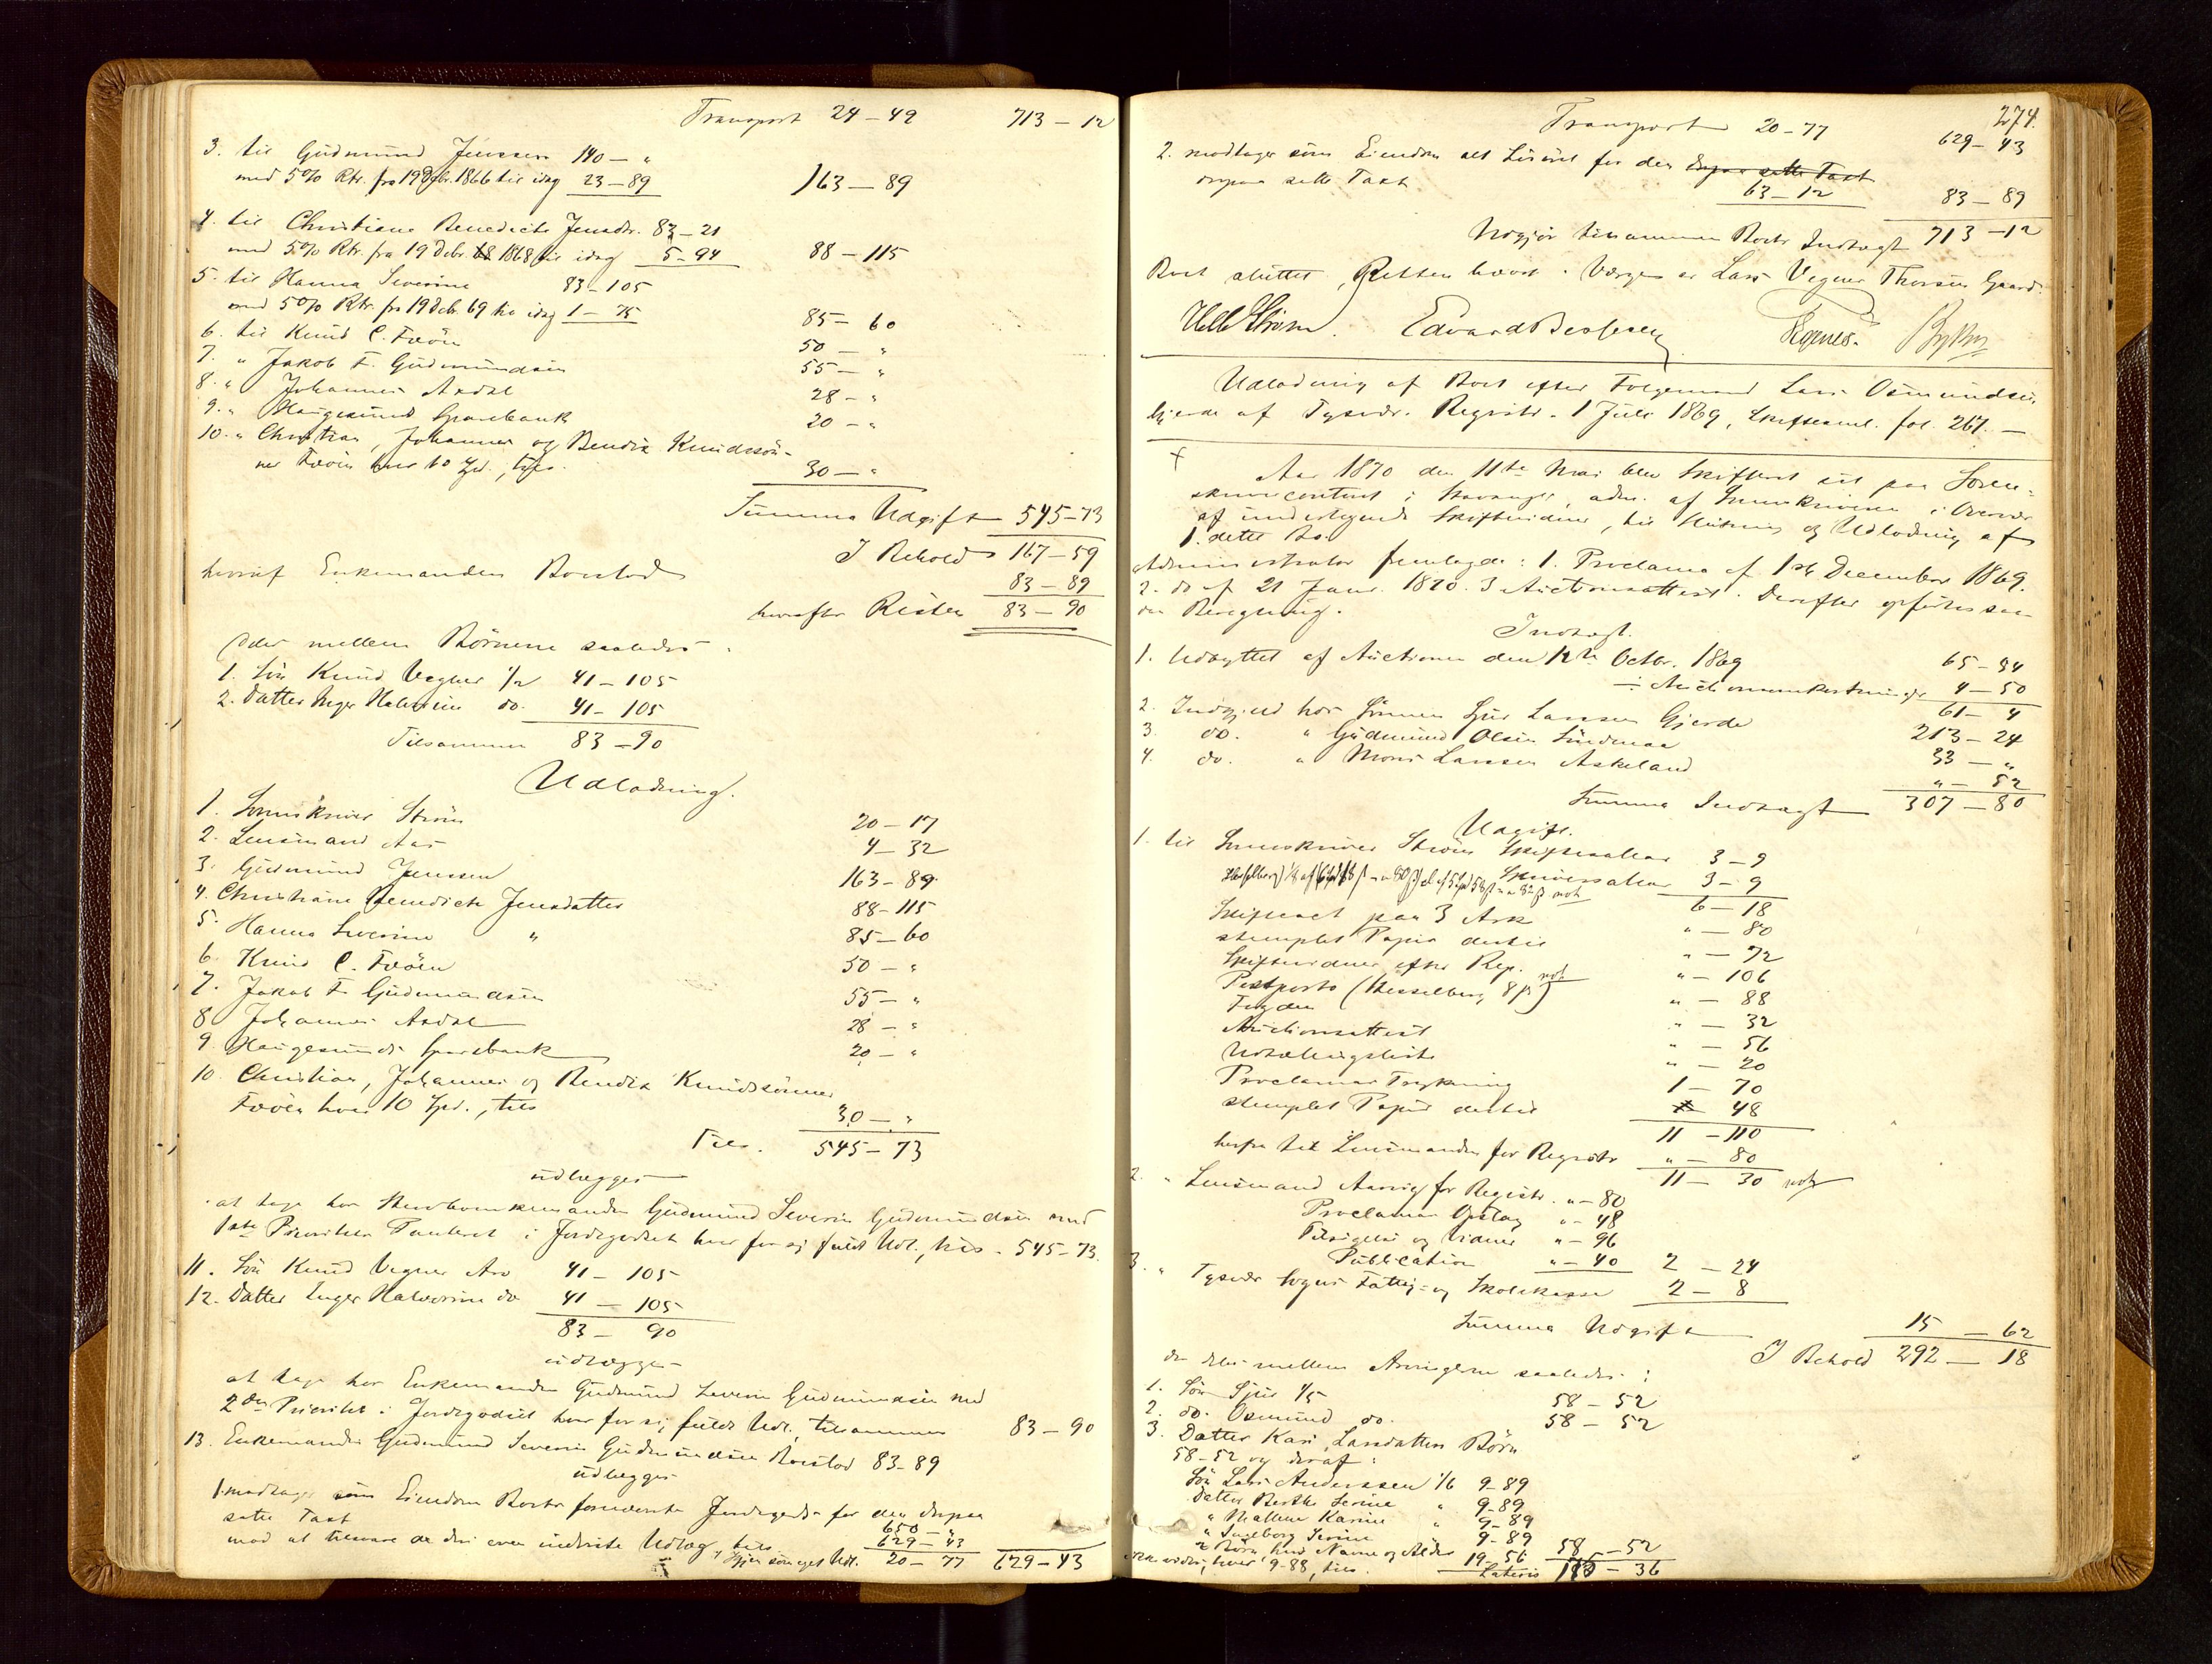 Transport 24 – 49 713 – 12
3. til Gudmund Jenssen 140 – "
med 5% Rtr. fra 19 Debr. 1866 til idag 23 – 89 163 – 89
4. til Christiane Benedicte Jensdtr. 83 – 21
med 5% Rtr. fra 19 Debr. 1868 til idag 5 – 94 88 – 115
5. til Hanna Severine 83 – 105
med 5% Rtr. fra 19 Debr. 69 til idag 1 – 75 85 – 60
6. til Knud C. Fæøen 50 – "
7. " Jakob F. Gudmundsen 55 – "
8. " Johannes Axdal 28 – "
9. " Haugesunds Sparebank 20 – "
10. " Christian, Johannes og Bendix Knudssøn-
ner Fæøen hver 10 Spd., tils. 30 – "
Summa Udgift 545 – 73
I Behold 167 – 59
heraf Enkemanden Boeslod 83 – 89
herefter Resten 83 – 90
deles mellem Børnene saaledes:
1. Søn Knud Vegner 1/2 41 – 105
2. Datter Inger Halvorine do. 41 – 105
Tilsammen 83 – 90
Udlodning.
1. Sorenskriver Strøm 20 – 17
2. Lensmand Aas 4 – 32
3. Gudmund Jenssen 163 – 89
4. Christiane Benedicte Jensdatter 88 – 115
5. Hanna Severine " 85 – 60
6. Knud C. Fæøen 50 – "
7. Jakob F. Gudmundsen 55 – "
8. Johannes Axdal 28 – "
9. Haugesunds Sparebank 20 – "
10. Christian, Johannes og Bendix Knudssønner
Fæøen hver 10 Spd., tils 30 – "
Tils. 545 – 73
udlægges
at tage hos Enkemanden Gudmund Severin Gudmundsen med
1ste Prioritets Panteret i Jordegodset hver for sig fuldt Udl., tils. 545 – 73
11. Søn Knud Vegner Arv 41 – 105
12. Datter Inger Halvorine do 41 – 105
83 – 90
udlægges
at tage hos Enkemanden Gudmund Severin Gudmundsen med
2den Prioritet i Jordegodset hver for sig fuldt Udl., tilsammen 83 – 90
13. Enkemanden Gudmund Severin Gudmundsen Boeslod 83 – 89
udlægges
1. modtager som Eiendom Boets forneevnte Jordegods for den derpaa
satte Taxt 650 – "
mod at tilsvare de deri oven indviste Udlæg, tils. 629 – 43
Igjen som eget Udl. 20 – 77 629 – 43
274.
Transport 20 – 77 629 – 43
2. modtager som Eiendom alt Løsøret for den derpaa satte Taxt
derpaa satte Taxt 63 – 12 83 – 89
Udgjør tilsammen Boets Indtægt 713 – 12
Boet sluttet, Retten hævet. Værge er Lars Vegner Thorsen Gaard.
Strøm. Edvard Vegner
Udlodning af Boet efter Folgemand Lars Osmundsen
Gjerde af Tysvær. Registr. 1 Juli 1869, Skiftesaml. fol. 267. –
†
Aar 1870 den 11te Mai blev Skifteret sat paa Soren-
skrivercontoret i Stavanger, adm. af Sorenskriveren i Overvær
af undertegnede Skiftevidner, til Slutning og Udlodning af
dette Bo.
Administrator fremlagde: 1. Proclama af 1ste December 1869.
2. do af 21 Janr. 1870. 3 Auctionsattest. Derefter opførtes saa-
dan Beregning.
Indtægt.
1. Udbyttet af Auctionen den 12te Octbr. 1869 65 – 54
÷ Auctionsomkostninger 4 – 50
61 – 4
2. Indgjeld hos Sønnen Sjur Larssen Gjerde 213 – 24
3. do. " Gudmund Olsen 33 – "
4. do. " Mons Larssen Askeland " – 52
Summa Indtægt 307 – 80
Udgift.
1. til Sorenskriver Strøm Skiftesallar 3 – 9
3 – 9
6 – 18
Skifteact paa 3 Ark " – 80
stemplet Papir dertil " – 72
Skiftevidner efter Rep. " – 106
Postporto (Hesselberg 8 ß) not " – 88
Fogden " – 32
Auctionsattest " – 56
Udtællingsliste " – 20
Proclamas Trykning 1 – 70
stemplet Papir dertil 48
11 – 110
herfra til Lensmanden for Registr " – 80
11 – 30 not
2. " Lensmand Aarvig for Registr. " – 80
Proclamas Opslag " – 48
Tilsigelse og Vidner " – 96
Publication " – 40 2 – 24
3. " Tysvær Sogns Fattig- og Skolekasse 2 – 8
Summa Udgift 15 – 62
I Behold 292 – 18
der deles mellem Arvingerne saaledes:
1. Søn Sjur 1/5 58 – 52
2. do. Osmund do. 58 – 52
3. Datter Kari Larsdatters Børn
58 – 52 og deraf:
Søn Lars Anderssen 1/6 9 – 89
Datter Berthe Serine " 9 – 89
" Mallene Karine " 9 – 89
" Ingeborg Serine 9 – 89
2 Børn hvis Navne og Alder 19 – 56 58 – 52
ikke vides, hver 9 – 88, tils. Lateris – 36